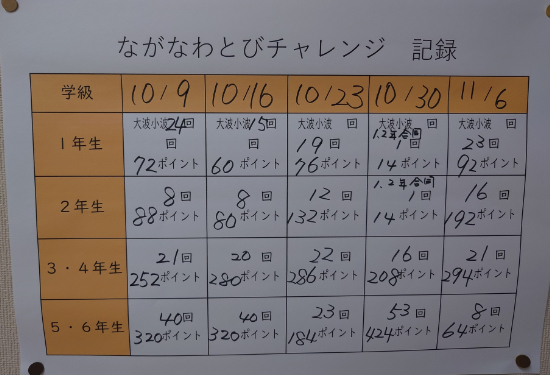 ながなわとびチャレンジ 記録
学級 10/9 10/16 10/23 10/30 11/6
1年生
大波小波24回
回
72ポイント
大波小波15回
回
60ポイント
大波小波 回
19回
76ポイント
大波小波 回
1.2年合同
1回
14ポイント
大波小波 回
23回
92ポイント
2年生
8回
88ポイント
8回
80ポイント
12回
132ポイント
1.2年合同
1回
14ポイント
16回
192ポイント
3・4年生
21回
252ポイント
20回
280ポイント
22回
286ポイント
16回
208ポイント
21回
294ポイント
5・6年生
40回
320ポイント
40回
320ポイント
23回
184ポイント
53回
424ポイント
8回
64ポイント